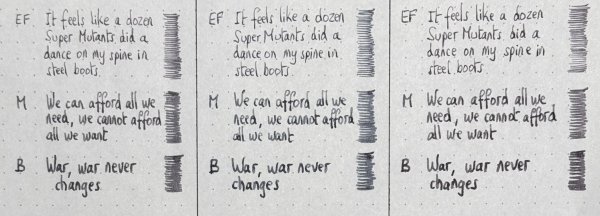 EF It feels like a dozen
Super Mutants did a
dance on my spine in
steel boots.
M We can afford all we
need, we cannot afford
all we want
B War, war never
changes
EF It feels like a dozen
Super Mutants did a
dance on my spine in
steel boots
M We can afford all we
need, we cannot afford
all we want
B War, war never
changes
EF It feels like a dozen
Super Mutants did a
dance on my spine in
steel boots.
M We can afford all we
need, we cannot afford
all we want
B War, war never
changes